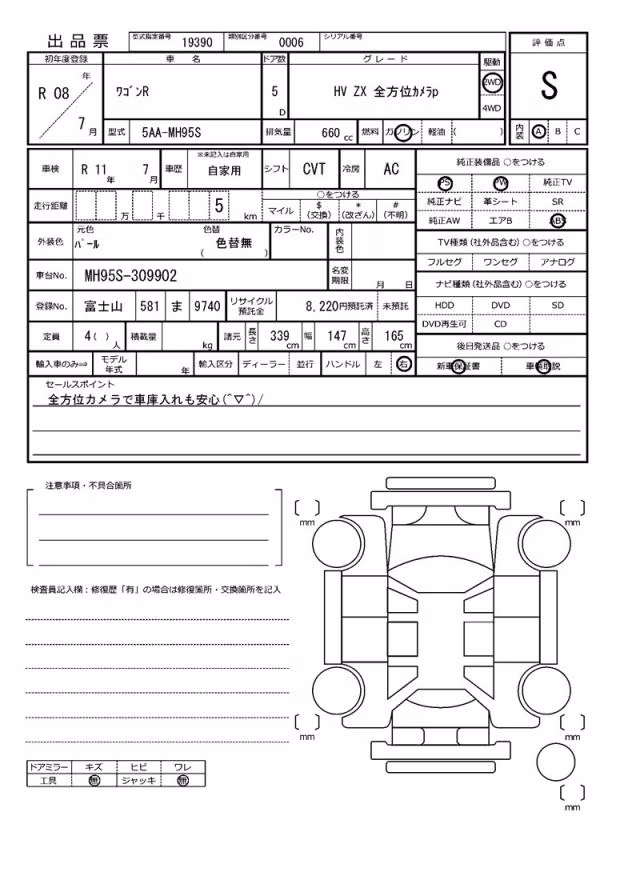 出品票 型式指定番号 19390 類別区分番号 0006 シリアル番号
評価点
初年度登録 車名 ドア数 グレード 駆動
R 08 年 7 月 ﾜｺﾞﾝR 5 D HV ZX 全方位ｶﾒﾗp 2WD 4WD
S
型式 5AA-MH95S 排気量 660 cc 燃料 ガソリン 軽油 ( )
内装 A B C
車検 R 11 年 7 月 車歴 ※未記入は自家用 自家用 シフト CVT 冷房 AC
純正装備品 ○をつける
PS PW 純正TV
純正ナビ 革シート SR
純正AW エアB ABS
走行距離 万 千 5 km ○をつける
マイル $(交換) *(改ざん) #(不明)
外装色 元色 ﾊﾟｰﾙ 色替 色替無 ( ) カラーNo. 内装色
TV種類 (社外品含む) ○をつける
フルセグ ワンセグ アナログ
車台No. MH95S-309902 名変期限 月 日
ナビ種類 (社外品含む) ○をつける
HDD DVD SD
DVD再生可 CD
登録No. 富士山 581 ま 9740 リサイクル預託金 8,220円預託済 未預託
定員 4 ( ) 人 積載量 kg 諸元 長さ 339 cm 幅 147 cm 高さ 165 cm
後日発送品 ○をつける
新車保証書 車輌取説
輸入車のみ⇒ モデル年式 年 輸入区分 ディーラー 並行 ハンドル 左 右
セールスポイント
全方位カメラで車庫入れも安心(^▽^)/
注意事項・不具合箇所
mm
mm
検査員記入欄：修復歴「有」の場合は修復箇所・交換箇所を記入
mm
mm
ドアミラー キズ ヒビ ワレ
工具 無 ジャッキ 無
mm